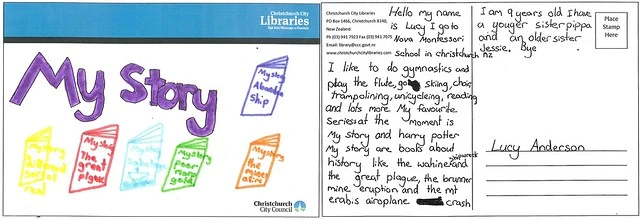 Christchurch City
Libraries
My Story
My Story
Abandon
Ship
My Story
My Story
The
great
plgek
My Story
poor
mans
gold
My Story
the
mines
afire
Christchurch
City Council
Christchurch City Libraries
PO Box 1466, Christchurch 8140,
New Zealand
Ph (03) 941 7923 Fax (03) 941 7075
Email: library@ccc.govt.nz
www.christchurchcitylibraries.com
Hello my name
is Lucy I go to
Nova Montessori
school in christchurch nz
I like to do gymnastics and
play the flute, go skiing, choir,
trampolining, unicycleing, reading
and lots more. My favourite
series at the moment is
My story and harry potter
My story are books about
history like the wahine shipwreck and
the great plague, the brunner
mine eruption and the mt
erabis airoplane crash
I am 9 years old I have
a youger sister pippa
and an older sister
Jessie. Bye
Place
Stamp
Here
Lucy Anderson